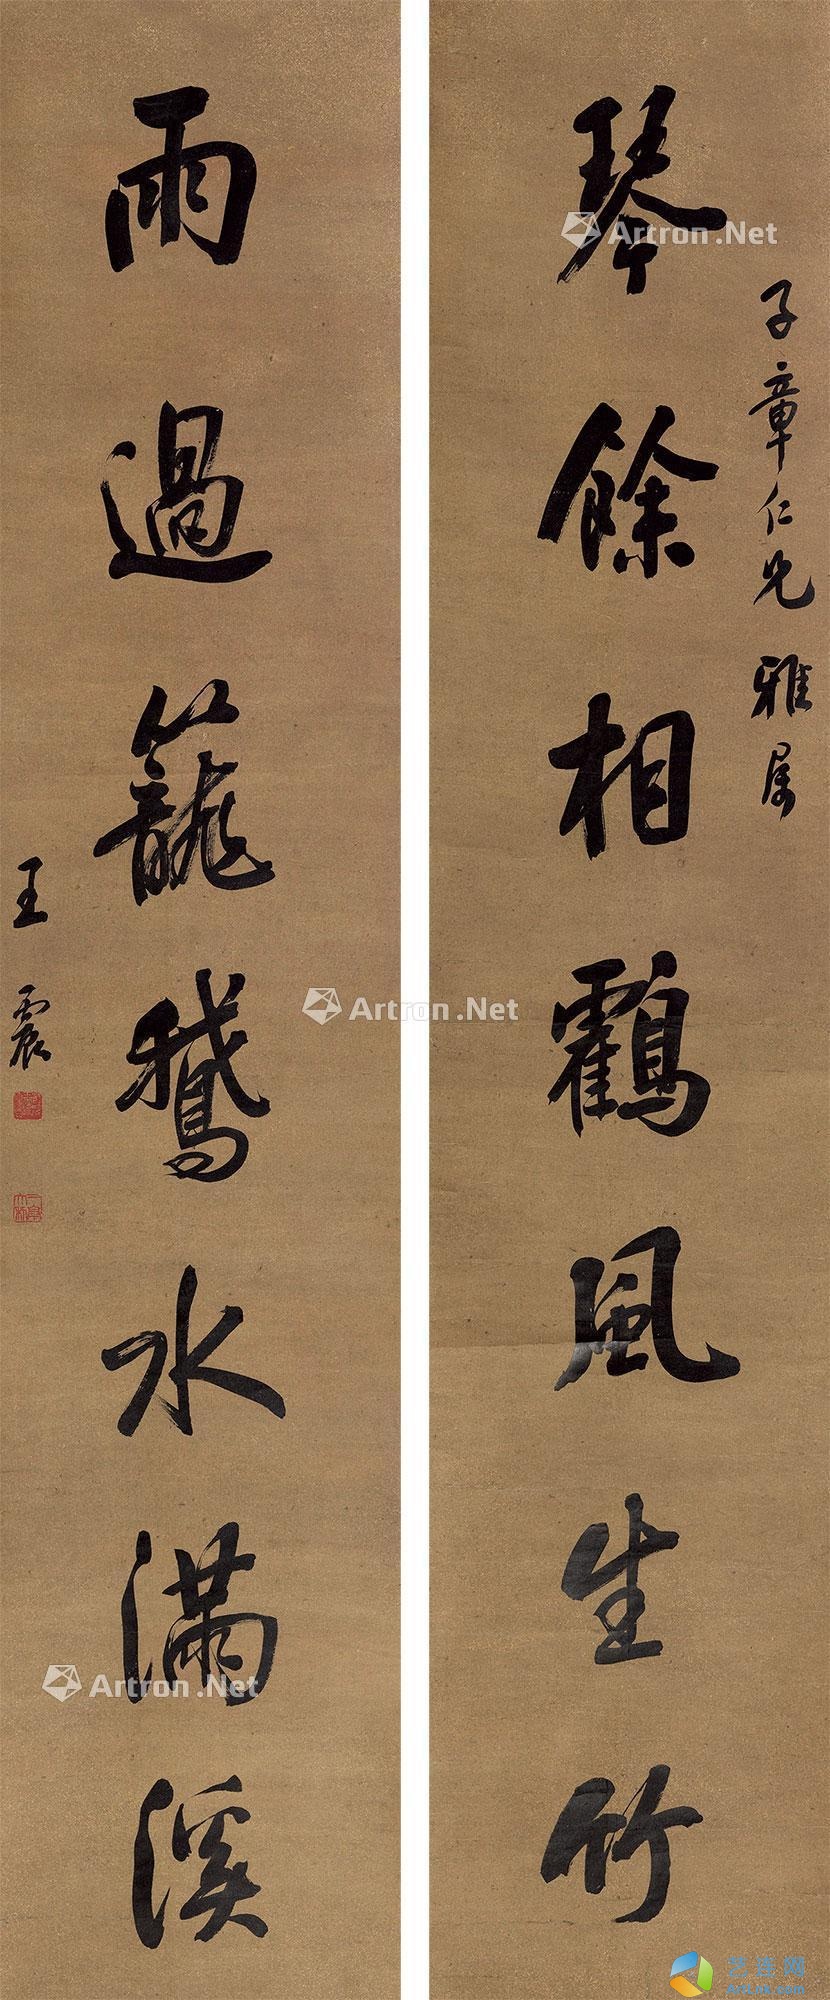 琴餘相鶴風生竹
子章仁兄雅属
雨過籠鵝水滿溪
王震
Artron.Net
Artron.Net
Artron.Net
艺连网